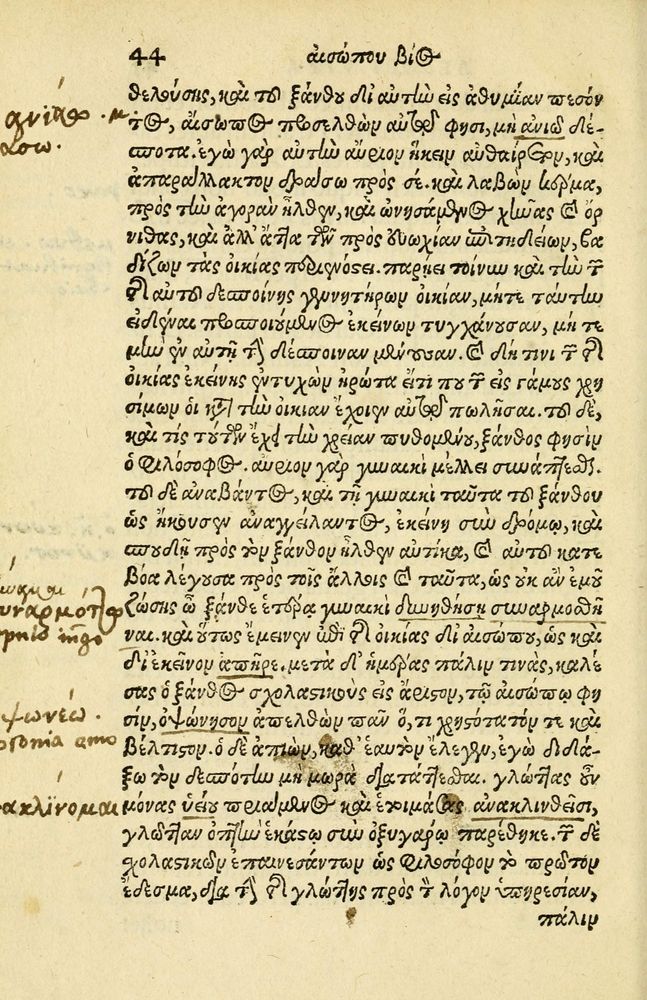 44 αἰσώπου βίος
θελούσης, καὶ τοῦ ξάνθου δι' αὐτὴν εἰς ἀθυμίαν πεσόν
τος, αἴσωπος προσελθὼν αὐτῷ φησι, μὴ ἀνιῶ δέ-
σποτα. ἐγὼ γὰρ αὐτὴν αὔριον ἥκειν αὐθαίρετον, καὶ
ἀπαράλλακτον δράσω πρὸς σέ. καὶ λαβὼν κέρμα,
πρὸς τὴν ἀγορὰν ἦλθεν, καὶ ὠνησάμενος χῆνας καὶ ὄρ
νιθας, καὶ ἄλλ' ἄττα τῶν πρὸς εὐωχίαν ἐπιτηδείων, βα
δίζων τὰς οἰκίας περιενόστει. παρῄει τοίνυν καὶ τὴν τῶν
τῆς αὐτοῦ δεσποίνης γεννητήρων οἰκίαν, μήτε ταύτην
εἰδέναι προσποιούμενος ἐκείνων τυγχάνουσαν, μήτε
μὴν ἐν αὐτῇ τὴν δέσποιναν μένουσαν. καὶ δή τινι τῶν τῆς
οἰκίας ἐκείνης ἐντυχὼν ἠρώτα εἴ τί που τῶν εἰς γάμους χρη
σίμων οἱ κατὰ τὴν οἰκίαν ἔχοιεν αὐτῷ πωλῆσαι. τοῦ δὲ,
καὶ τίς τούτων ἔχει τὴν χρείαν πυθομένου, ξάνθος φησὶν
ὁ φιλόσοφος. αὔριον γὰρ γυναικὶ μέλλει συνάπτεσθαι.
τοῦ δὲ ἀναβάντος, καὶ τῇ γυναικὶ ταῦτα τοῦ ξάνθου
ὡς ἤκουσεν ἀναγγείλαντος, ἐκείνη σὺν δρόμῳ, καὶ
σπουδῇ πρὸς τὸν ξάνθον ἦλθεν αὐτίκα, καὶ αὐτοῦ κατε
βόα λέγουσα πρὸς τοῖς ἄλλοις καὶ ταῦτα, ὡς οὐκ ἂν ἐμοῦ
ζώσης ὦ ξάνθε ἑτέρᾳ γυναικὶ δυνηθείης συναρμοσθῆ
ναι. καὶ οὕτως ἔμεινεν ἐπὶ τῆς οἰκίας δι' αἰσώπου, ὡς καὶ
δι' ἐκεῖνον ἀπῆρε. μετὰ δ' ἡμέρας πάλιν τινὰς, καλέ
σας ὁ ξάνθος σχολαστικοὺς εἰς ἄριστον, τῷ αἰσώπῳ φη
σὶν, ὀψώνησον ἀπελθὼν πᾶν ὅ,τι χρηστότατόν τε καὶ
βέλτιστον. ὁ δὲ ἀπιὼν, καθ' ἑαυτὸν ἔλεγεν, ἐγὼ διδά-
ξω τὸν δεσπότην μὴ μωρὰ διατάττεσθαι. γλώττας οὖν
μόνας ὑείου πριάμενος καὶ ἑτοιμάσας ἀνακλινθεῖσι,
γλῶτταν ὀπτὴν ἑκάστῳ σὺν ὀξυγάρῳ παρέθηκε. τῶν δὲ
σχολαστικῶν ἐπαινεσάντων ὡς φιλόσοφον τὸ πρῶτον
ἔδεσμα, διὰ τὴν τῆς γλώττης πρὸς τὸν λόγον ὑπηρεσίαν,
πάλιν
ἀνιάω
άσω.
υναρμόττω
ψωνέω.
psonia emo
ακλίνομαι